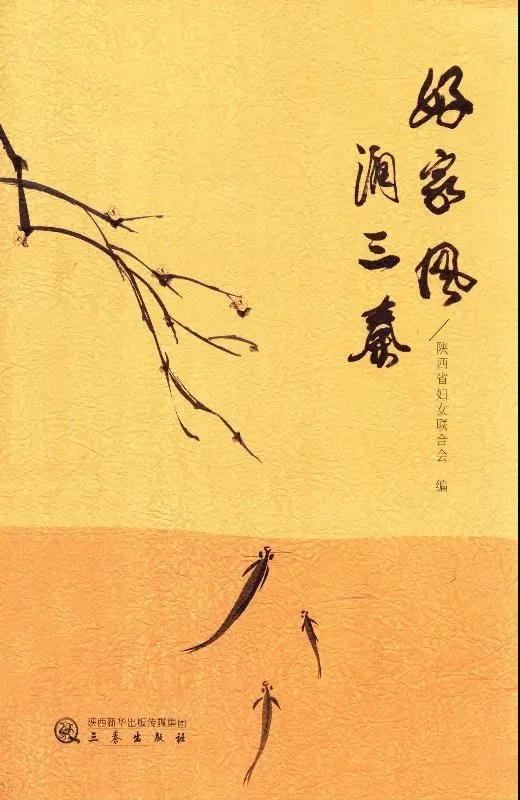 好家风
润三秦
陕西省妇女联合会 编
陕西新华出版传媒集团
三秦出版社